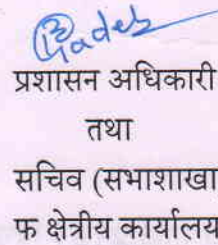 प्रशासन अधिकारी
तथा
सचिव (सभाशाखा
फ क्षेत्रीय कार्यालय